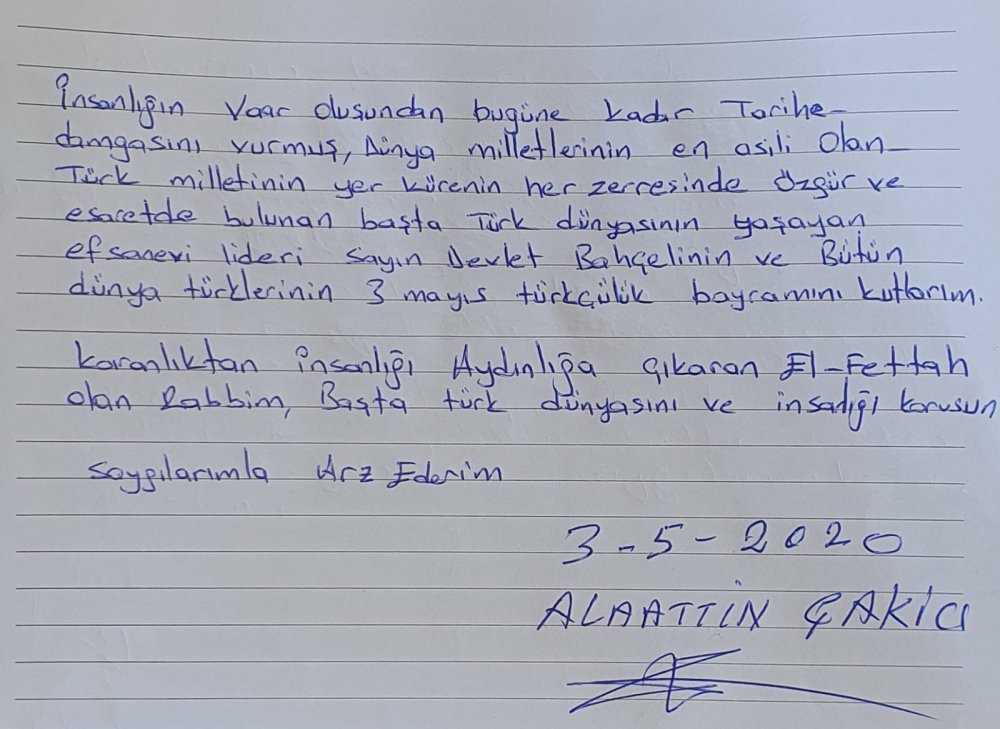 İnsanlığın Vaar oluşundan bugüne kadar Tarihe-
damgasını vurmuş, Dünya milletlerinin en asili Olan-
Türk milletinin yer kürenin her zerresinde Özgür ve
esaretde bulunan başta Türk dünyasının yaşayan
efsanevi lideri Sayın Devlet Bahçelinin ve Bütün
dünya türklerinin 3 mayıs türkçülük bayramını kutlarım.
Karanlıktan insanlığı Aydınlığa çıkaran El-Fettah
olan Rabbim, Başta türk dünyasını ve insadığı korusun
Saygılarımla Arz Ederim
3-5-2020
ALAATTİN ÇAKICI